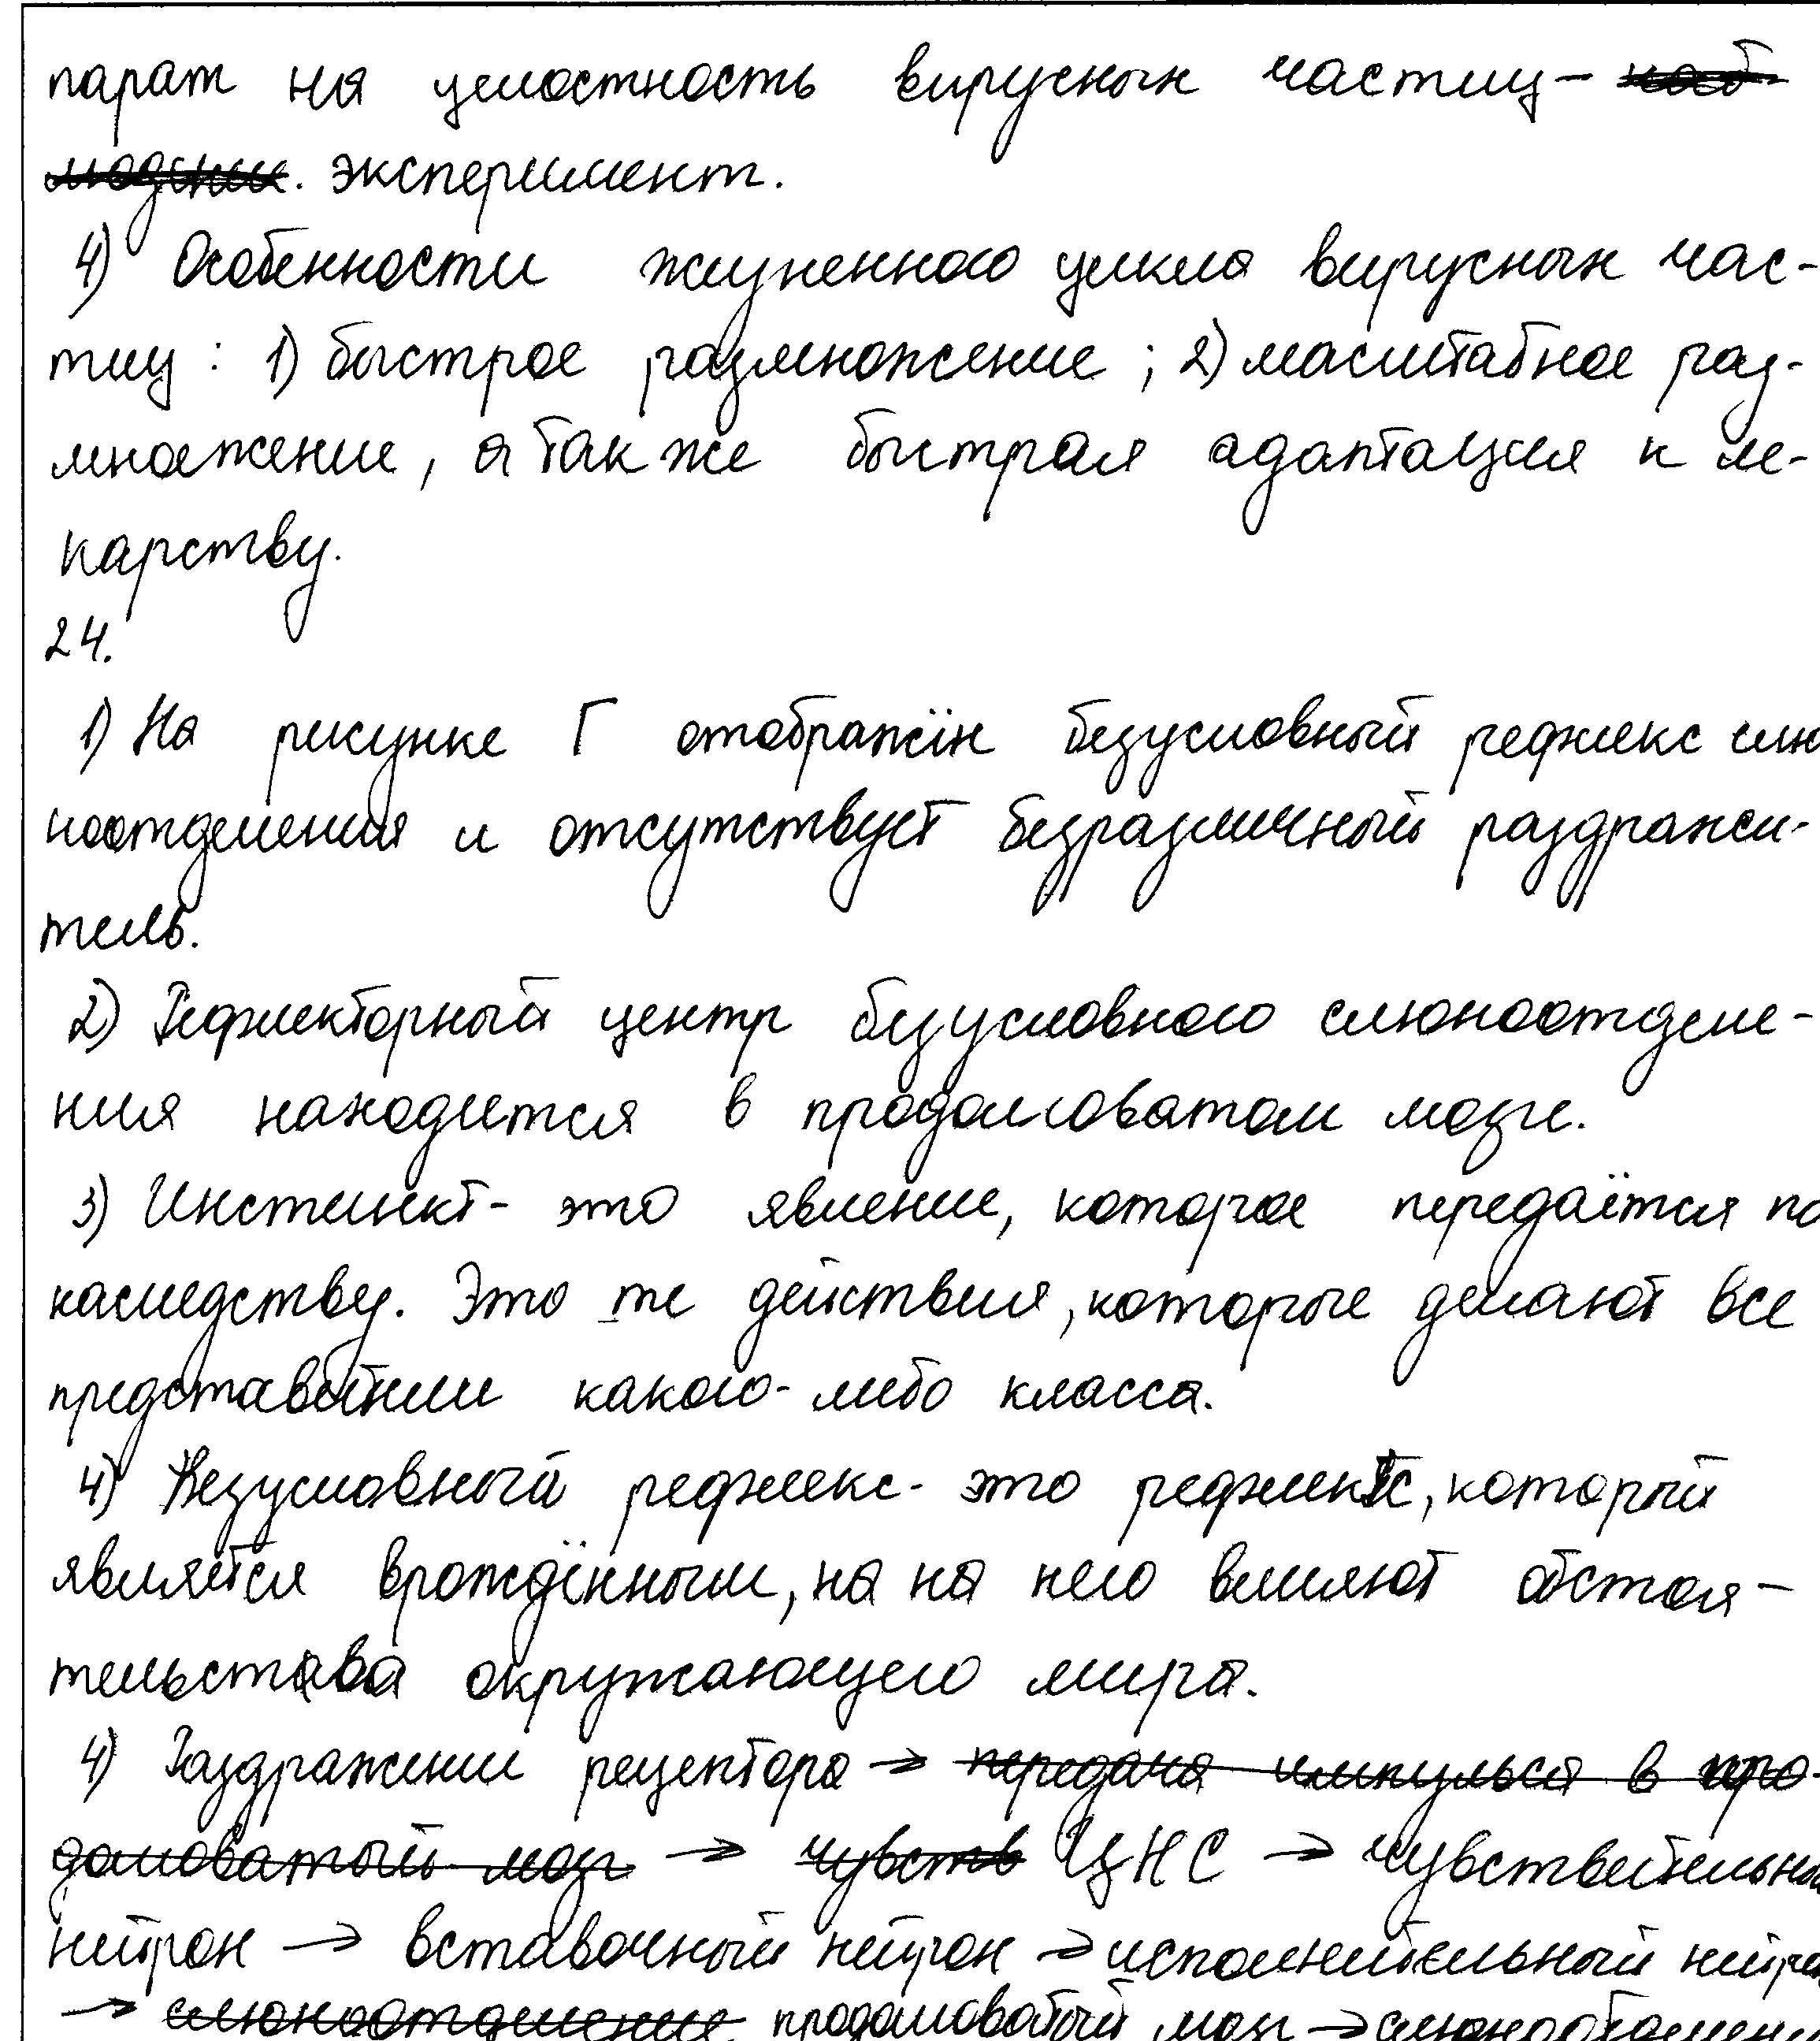 парат на целостность вирусных частиц- наб-
людении. эксперимент.
4) Особенности жизненного цикла вирусных час-
тиц: 1) быстрое размножение; 2) масштабное раз-
множение, а также быстрая адаптация к ле-
карству.
24.
1) На рисунке Г отображён безусловный рефлекс слю
ноотделения и отсутствует безразличный раздражи-
тель.
2) Рефлекторный центр безусловного слюноотделе-
ния находится в продолговатом мозге.
3) Инстинкт- это явление, которое передаётся по
наследству. Это те действия, которые делают все
представители какого-либо класса.
4) Безусловный рефлекс- это рефлекс, который
является врождённым, на на него влияют обстоя-
тельства окружающего мира.
4) Раздражении рецептора → передача импульса в про-
долговатый мозг → чувств ЦНС → чувствительный
нейрон → вставочный нейрон → исполнительный нейрон
→ слюноотделение продолговатый мозг →